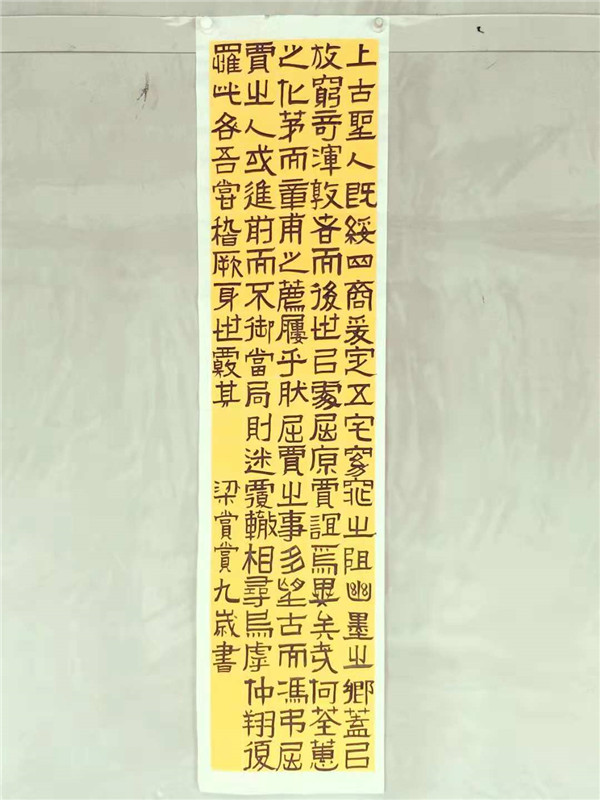 上古聖人既綏四商爰定五宅窕之阻幽墨之鄉蓋㠯
放窮奇渾敦者而後世㠯處屈原賈誼焉異矣哉何荃蕙
之化茅而章甫之薦屨乎肰屈賈之事多望古而馮弔屈
賈之人或進前而不御當局則迷覆轍相尋烏虖仲翔復
罹此咎吾嘗稽厥身世覈其
梁賞賞九歲書